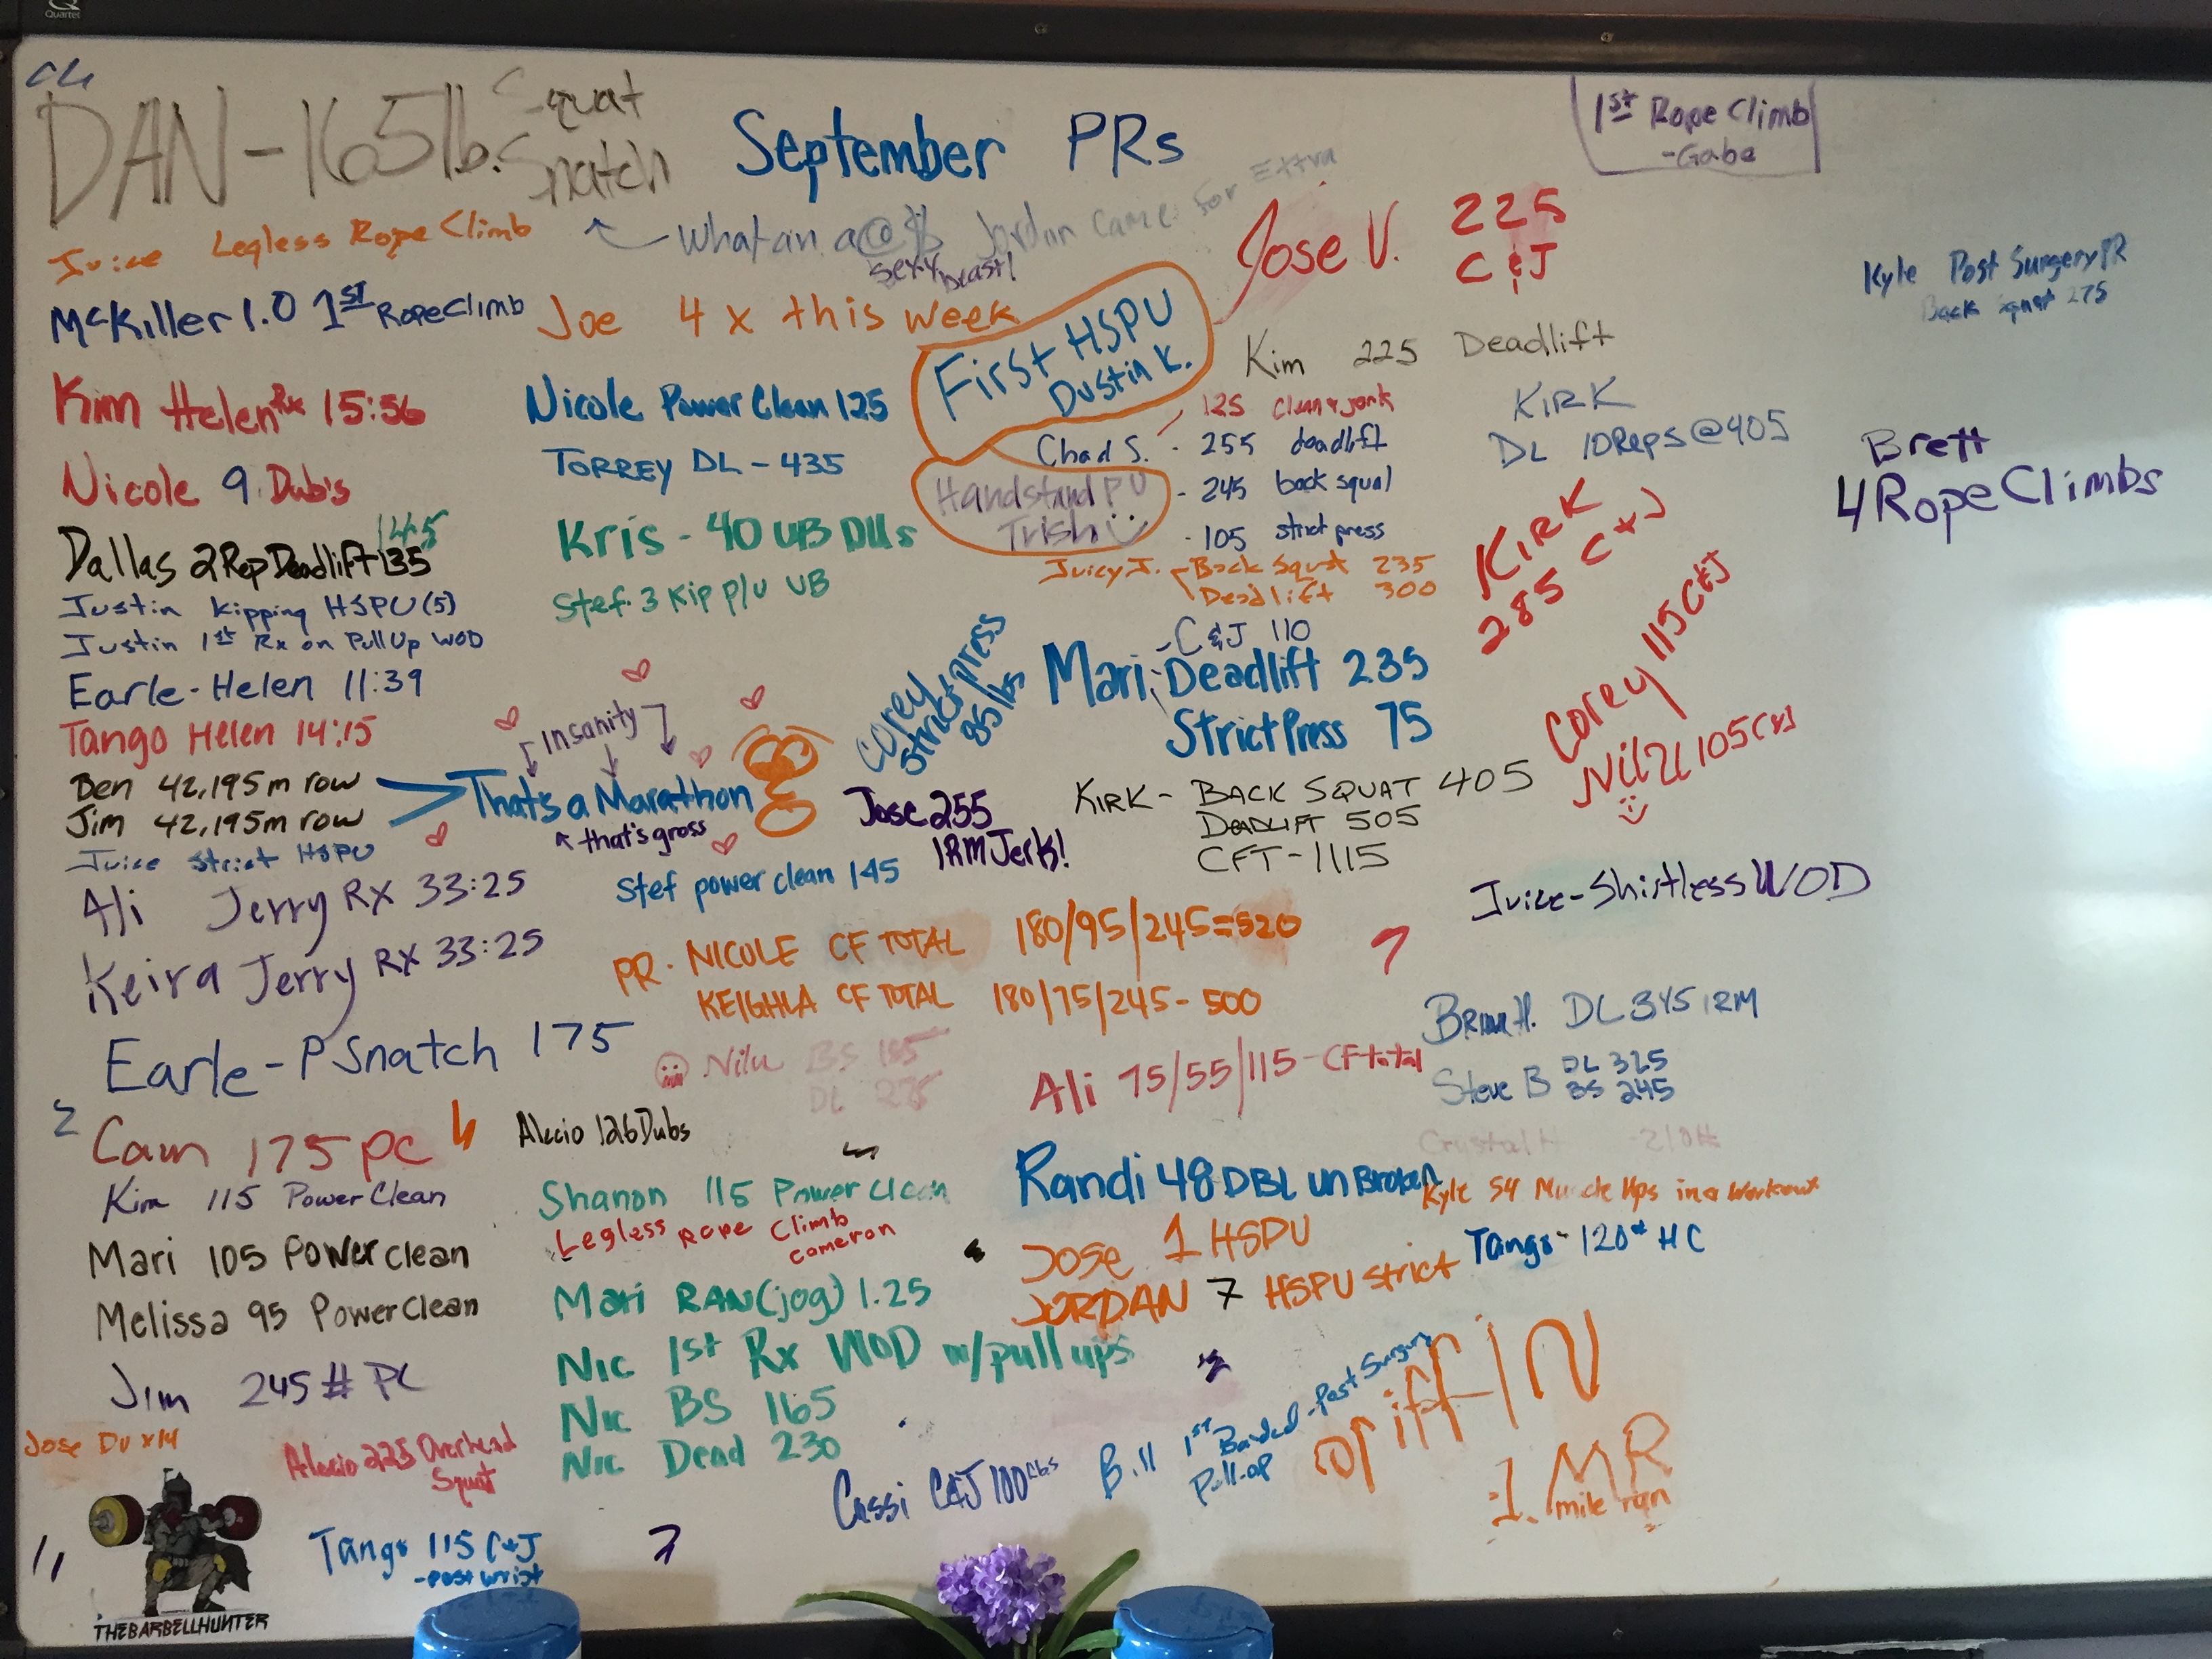 Quartet
DAN - 165 lb. Squat
Snatch
September PRs
1st Rope Climb
- Gabe
Juice Legless Rope Climb
What an a@$ Jordan came for Extra
sexy beast!
Jose V. 225
C & J
Kyle Post Surgery PR
Back squat 275
McKiller 1.0 1ST Rope Climb
Joe 4 x this week
First HSPU
Dustin K.
Kim 225 Deadlift
Kim Helen Rx 15:56
Nicole Power Clean 125
125 Clean & jerk
Chad S. - 255 deadlift
- 245 back squat
- 105 strict press
KIRK
DL 10 Reps @ 405
Brett
4 Rope Climbs
Nicole 9 Dub's
TORREY DL - 435
Handstand PU
Trish
145
Dallas 2 Rep Deadlift 135
Kris - 40 UB DUs
Juicy J. - Back Squat 235
Deadlift 300
KIRK
285 C+J
Justin Kipping HSPU (5)
Stef. 3 Kip p/u UB
Justin 1st Rx on Pull Up WOD
Corey
Strict press
85 lbs
Mari - C&J 110
Deadlift 235
Strict Press 75
Corey 115 C&J
105
Earle - Helen 11:39
Tango Helen 14:15
Insanity
Ben 42,195m row
Jim 42,195m row
That's a Marathon
that's gross
Jose 255
1RM Jerk!
KIRK - BACK SQUAT 405
DEADLIFT 505
CFT - 1115
Juice Strict HSPU
Stef power clean 145
Juice - Shirtless WOD
Ali Jerry RX 33:25
Keira Jerry RX 33:25
PR. NICOLE CF TOTAL 180/95/245=520
KEIGHLA CF TOTAL 180/75/245- 500
Earle - P Snatch 175
Nilu BS 185
DL 275
Ali 75/55/115 - CF total
DL 345 1RM
Steve B DL 325
BS 245
Crystal H
Cam 175 PC
Alecio 126 Dubs
Kim 115 Power Clean
Shanon 115 Power Clean
Legless Rope Climb
Cameron
Randi 48 DBL UnBroken
Kyle 54 Muscle Ups in a Workout
Mari 105 Power clean
Jose 1 HSPU
Tango - 120# HC
Mari RAN (jog) 1.25
JORDAN 7 HSPU Strict
Melissa 95 Power Clean
Nic 1st Rx WOD w/pull ups
Jim 245 # PC
Nic BS 165
Nic Dead 230
Jose DU x14
Alecio 225 Overhead
Squat
Cassi C&J 100 lbs
Bill 1st Banded - Post Surgery
Pull-up
GriffIN
1. MR
mile ran
Tango 115 C&J
- post wrist
THEBARBELLHUNTER